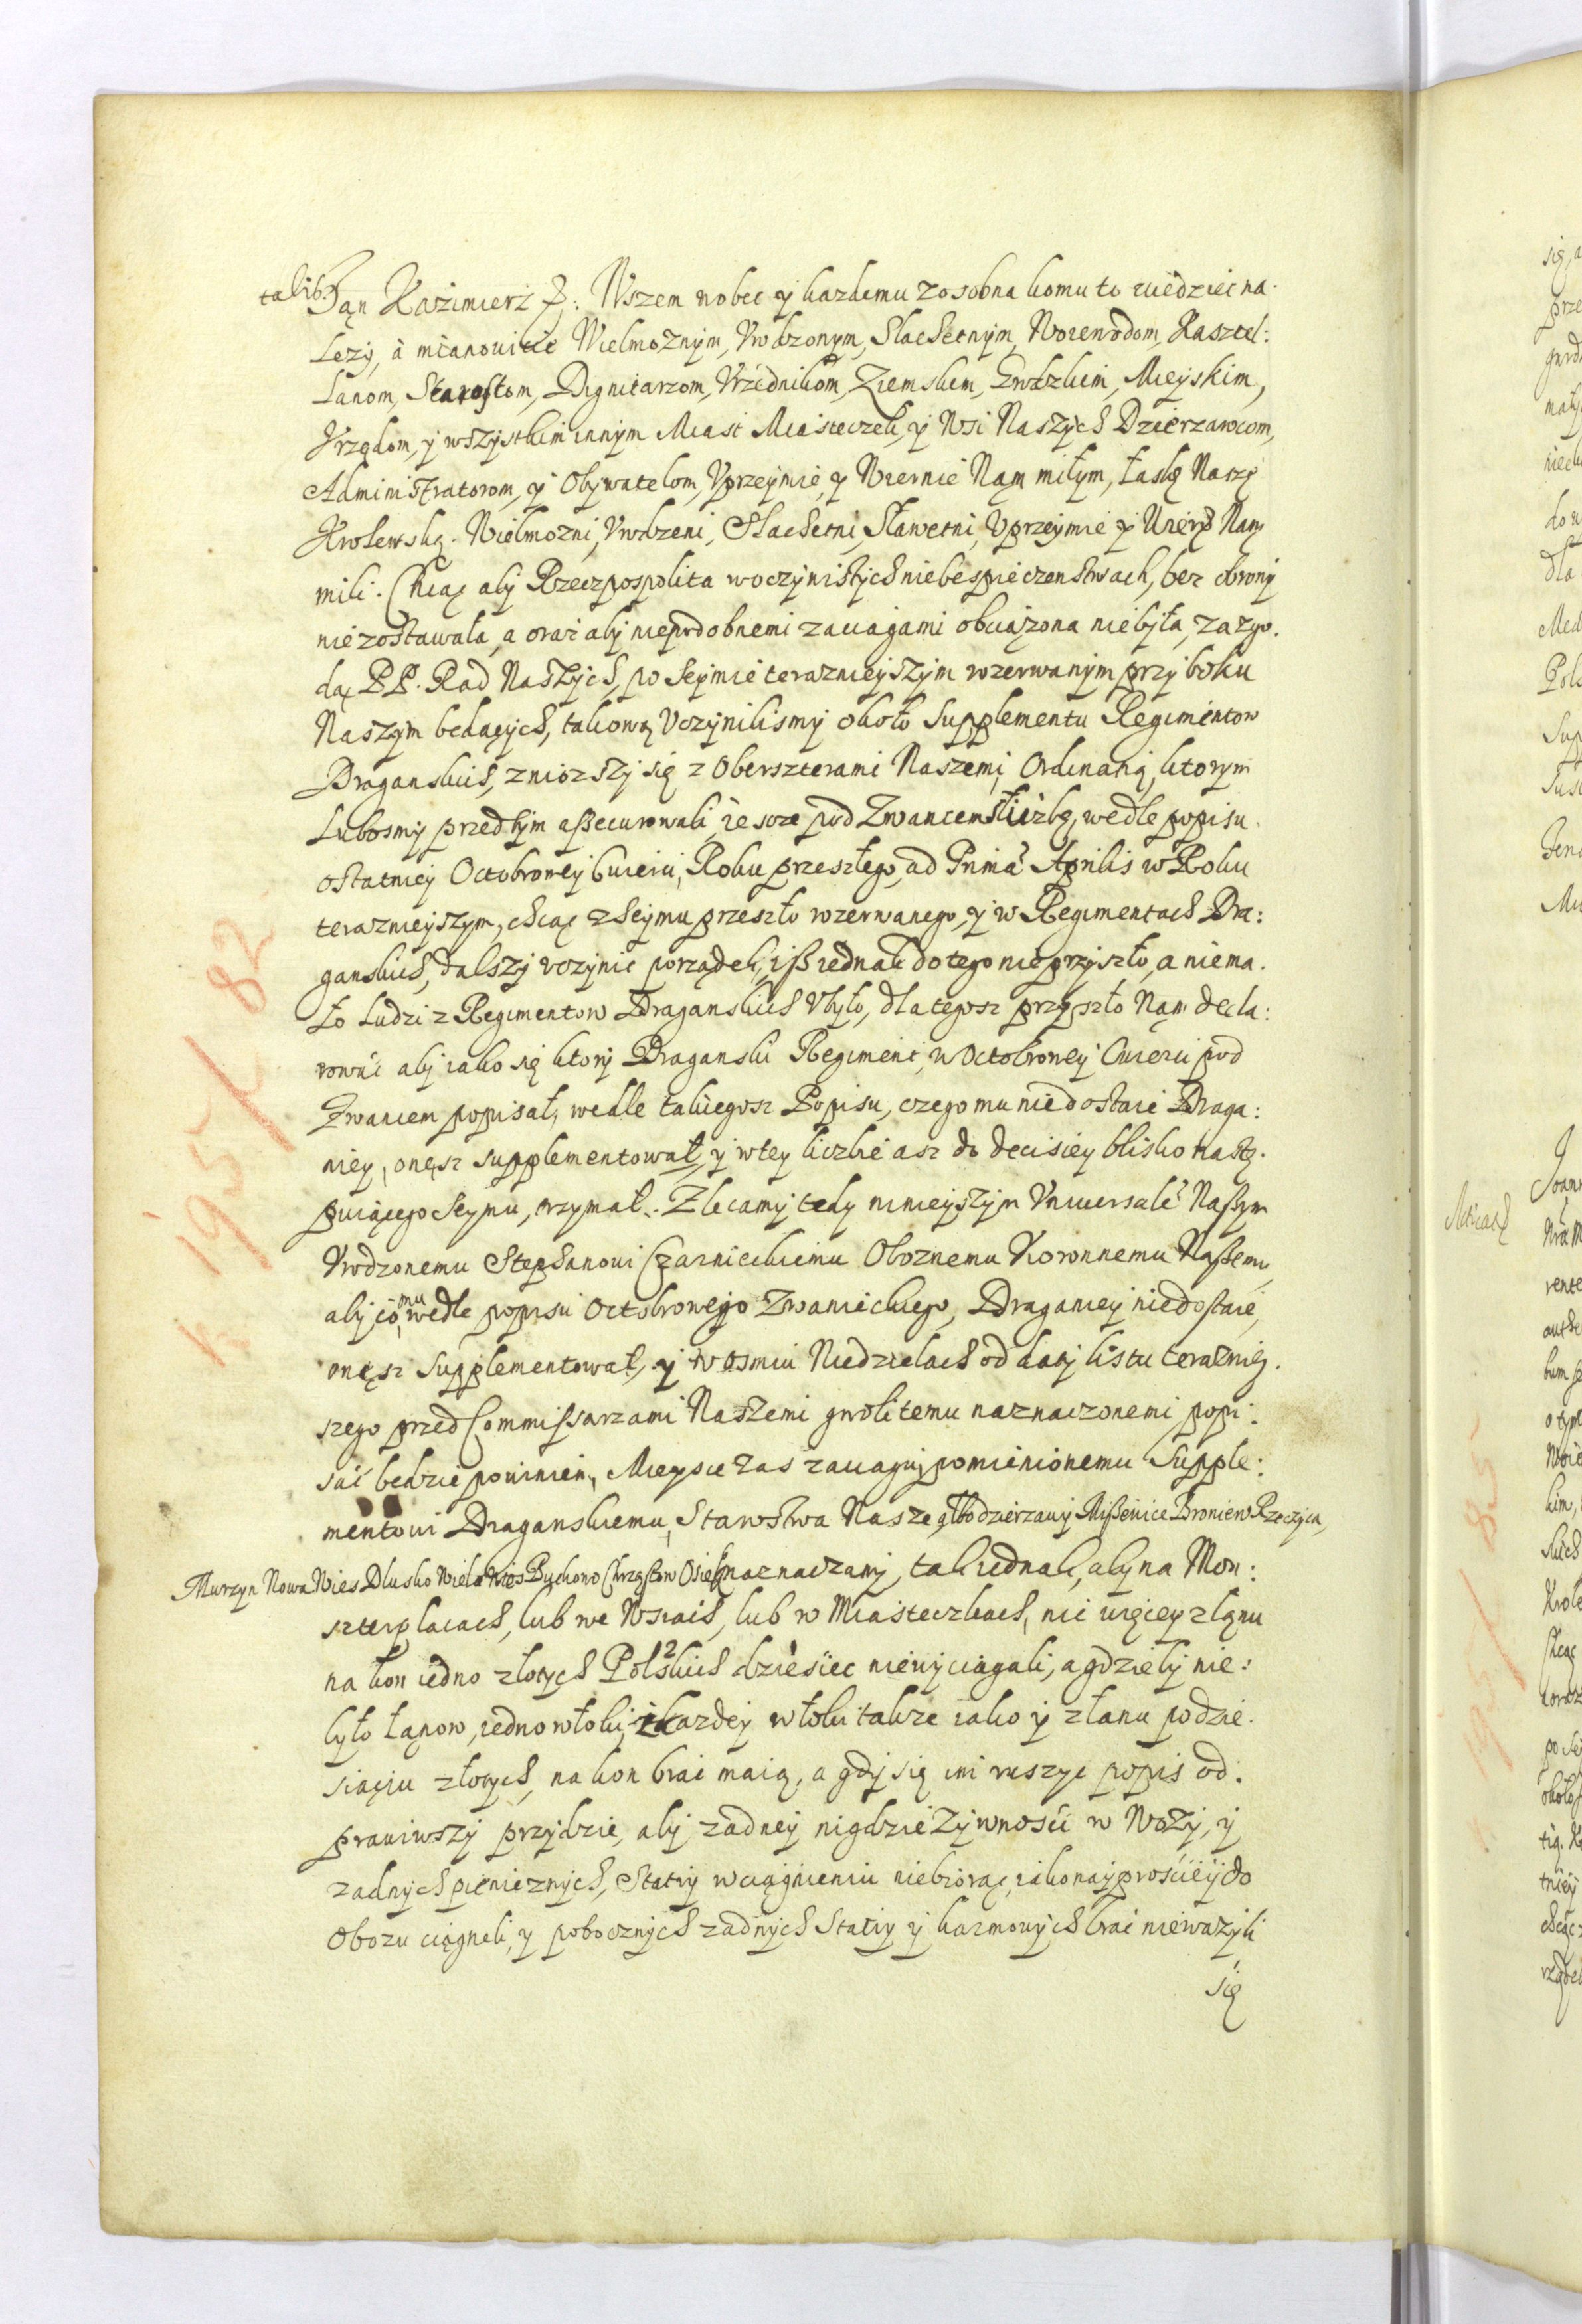 Jan Kazimierz &: Wszem wobec y kazdemu zosobna komu to wiedziec na.
Lezy, à mianowicie Wielmoznym, Vrodzonym, Slachetnym, Woiewodom, Kasztel:
Lanom, Starostom, Dignitarzom, Vrzednikom, Ziemskim, Grodzkim, Mieyskim,
Vrzędom, y wszystkim innym Miast Miasteczek, y Wsi Naszych Dzierzawcom,
Administratorom, y Obywatelom, Vprzeymie, y Wiernie Nąm miłym, łaskę Naszę
Krolewską. Wielmozni, Vrodzeni, Slachetni, Sławetni, Vprzeymie y Wiernie Nam
mili. Chcąc aby Rzeczpospolita woczywistych niebespieczenstwach, bez obrony
nie zostawała, a oraz aby niepodobnemi zaciagami obciążona niebyła, za zgo.
dą PP. Rad Naszych, po Seymie terazniejszym rozerwanym przy boku
Naszym bedących, takową Vczynilismy około Supplementu Regimentow
Draganskich, zniozszy się z Oberszterami Naszemi, Ordinatią, ktorym
Lubosmy przedtym assecurowali, ze wze pod Zwancem słuzbę, wedle popisu
ostatniey Octobrowey Cwierci, Roku przeszłego, ad Prima Aprilis w Roku
terazniejszym, chcąc z Seymu przeszło rozerwanego, y w Regimentach Dra:
ganskich, dalszy vczynic porządek, iss iednak do tego nie przyszło, a niema.
ło ludzi z Regimentow Draganskich Vbyło, dla tegosz przyszło Nąm decla:
rowac aby iako się ktory Draganski Regiment, w Octobrowey Cwierci pod
Zwancem popisał, wedle takiegosz Popisu, czego mu niedostaie Draga:
niey, onęsz supplementował, y wtey liczbie asz do decisiey blisko nastę.
puiącego Seymu, trzymał. Zlecamy tedy ninieyszym Vniwersałe Naszym
Vrodzonemu Stephanowi Czarnieckiemu Oboznemu Koronnemu Naszemu,
aby co mu wedle popisu Octobrowego Zwanieckiego, Draganiey niedostaie,
onęsz supplementował, y w osmiu Niedzielach od daty listu teraznieỳ.
szego przed Commissarzami Naszemi gwoli temu naznaczonemi popi:
sać bedzie powinien, Mieysce zas zaciagu, pomienionemu Supple:
mentowi Draganskiemu, Starostwa Nasze, albo dzierzawy Broniew Rzeczyca,
Murzyn Nowa Wies Dlusko naznaczamy, tak iednak, aby na Mon:
szterplacach, lub we Wsiach, lub w Miasteczkach, nic więcey z łąnu
na kon iedno złotych Polskich 12 dziesiec niewyciagali, a gdzieby nie:
było łąnow, iedno włoki, z kazdey włoki takze iako y z łanu po dzie.
siąciu złotych, na kon brac maią, a gdy się im ruszyc popis od.
prawiwszy przydzie, aby zadney nigdzie Zywnosci w Wozy, y
zadnych pieniezných, Statiy w ciągnieniu niebiorąc, iako nayprościey do
Obozu ciągneli, y pobocznych zadnych Statiy y karmowych brac nieważyli
się
K 195/82